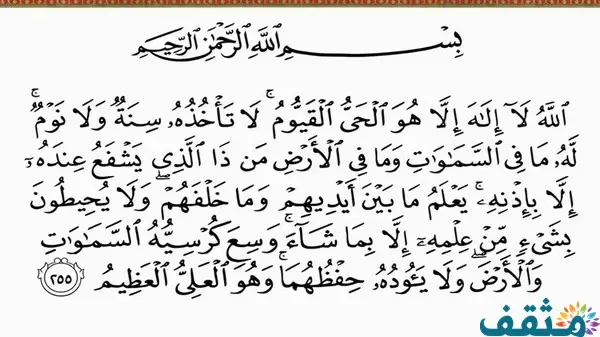 بِسْمِ ٱللَّهِ ٱلرَّحْمَٰنِ ٱلرَّحِيمِ
ٱللَّهُ لَآ إِلَٰهَ إِلَّا هُوَ ٱلْحَىُّ ٱلْقَيُّومُ ۚ لَا تَأْخُذُهُۥ سِنَةٌ وَلَا نَوْمٌ ۚ
لَّهُۥ مَا فِى ٱلسَّمَٰوَٰتِ وَمَا فِى ٱلْأَرْضِ مَن ذَا ٱلَّذِى يَشْفَعُ عِندَهُۥٓ
إِلَّا بِإِذْنِهِۦ ۚ يَعْلَمُ مَا بَيْنَ أَيْدِيهِمْ وَمَا خَلْفَهُمْ ۖ وَلَا يُحِيطُونَ
بِشَىْءٍ مِّنْ عِلْمِهِۦٓ إِلَّا بِمَا شَآءَ ۚ وَسِعَ كُرْسِيُّهُ ٱلسَّمَٰوَٰتِ
وَٱلْأَرْضَ ۖ وَلَا يَـُٔودُهُۥ حِفْظُهُمَا ۚ وَهُوَ ٱلْعَلِىُّ ٱلْعَظِيمُ ٢٥٥
مثقف